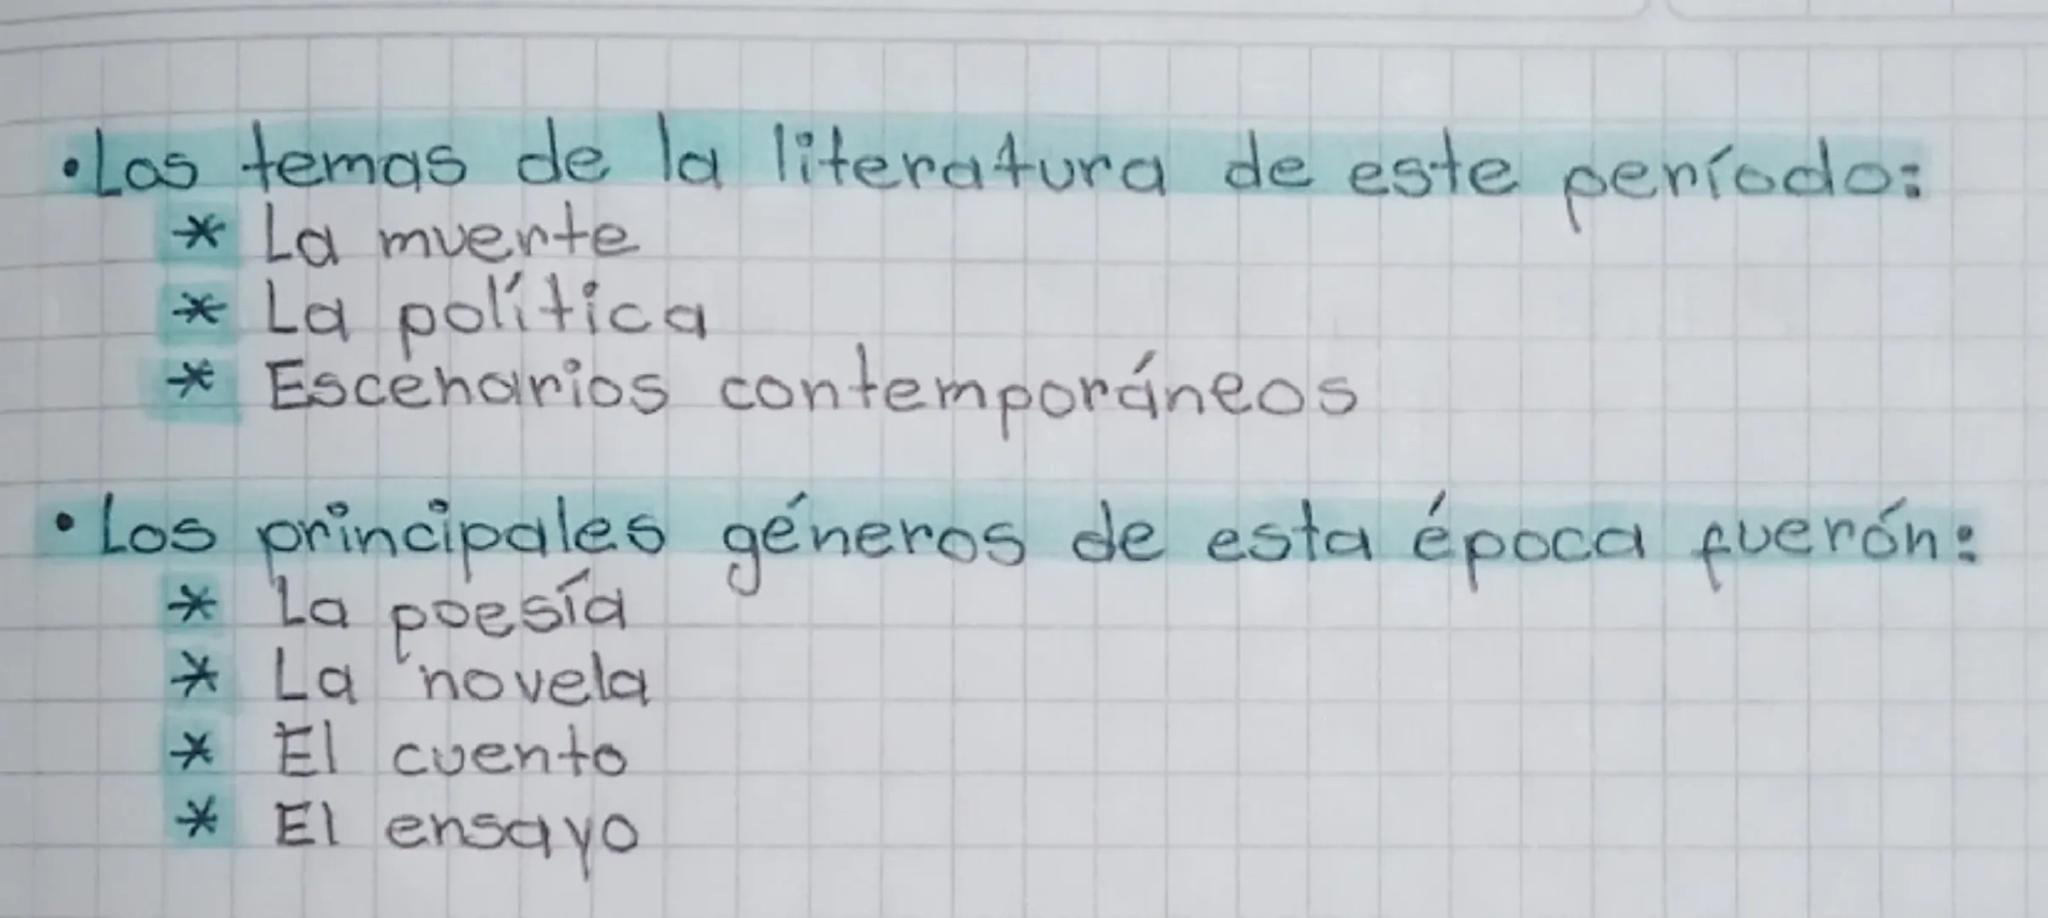 • Los temas de la literatura de este período:
* La muerte
* La política
* Escenarios contemporáneos
• Los principales géneros de esta época fuerón:
* La poesía
* La novela
* El cuento
* El ensayo